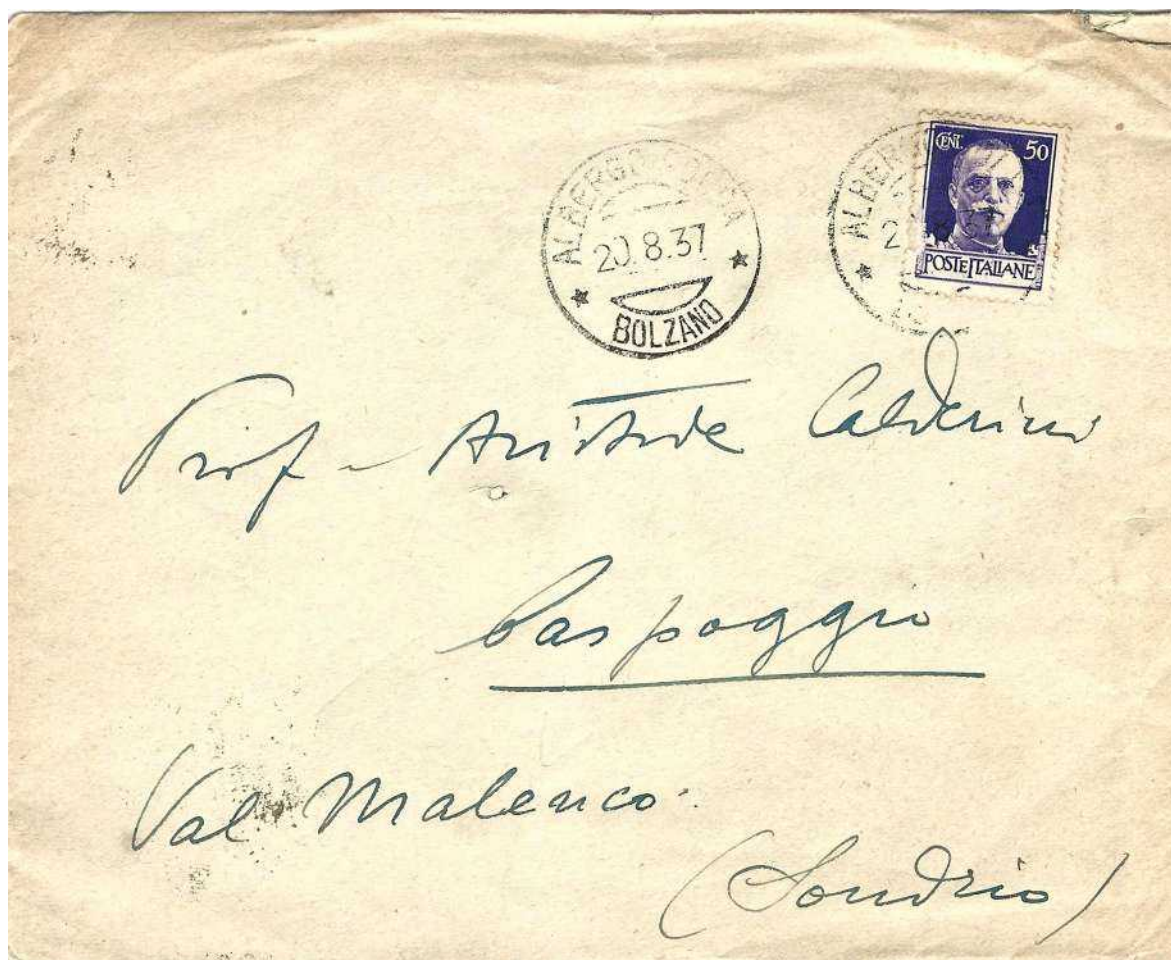 20.8.37
BOLZANO
CENT. 50
POSTE ITALIANE
Prof - Aristide Calderini
Caspoggio
Val Malenco
(Sondrio)